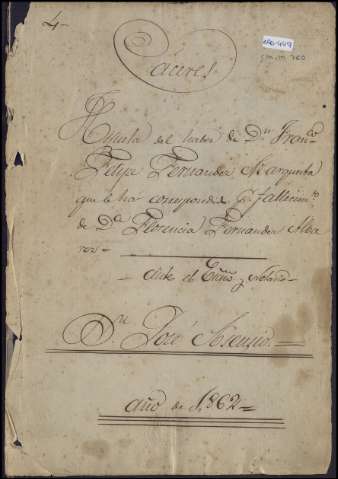 4
Cáceres.
Hijuela del haber de Dn. Franco.
Felipe Fernandez
que le ha correspondido pr. fallecimto.
de Da. Florencia Fernandez Alba
rez
ante el Esno. y Notario
Dn. José Asensio.
año de 1,862